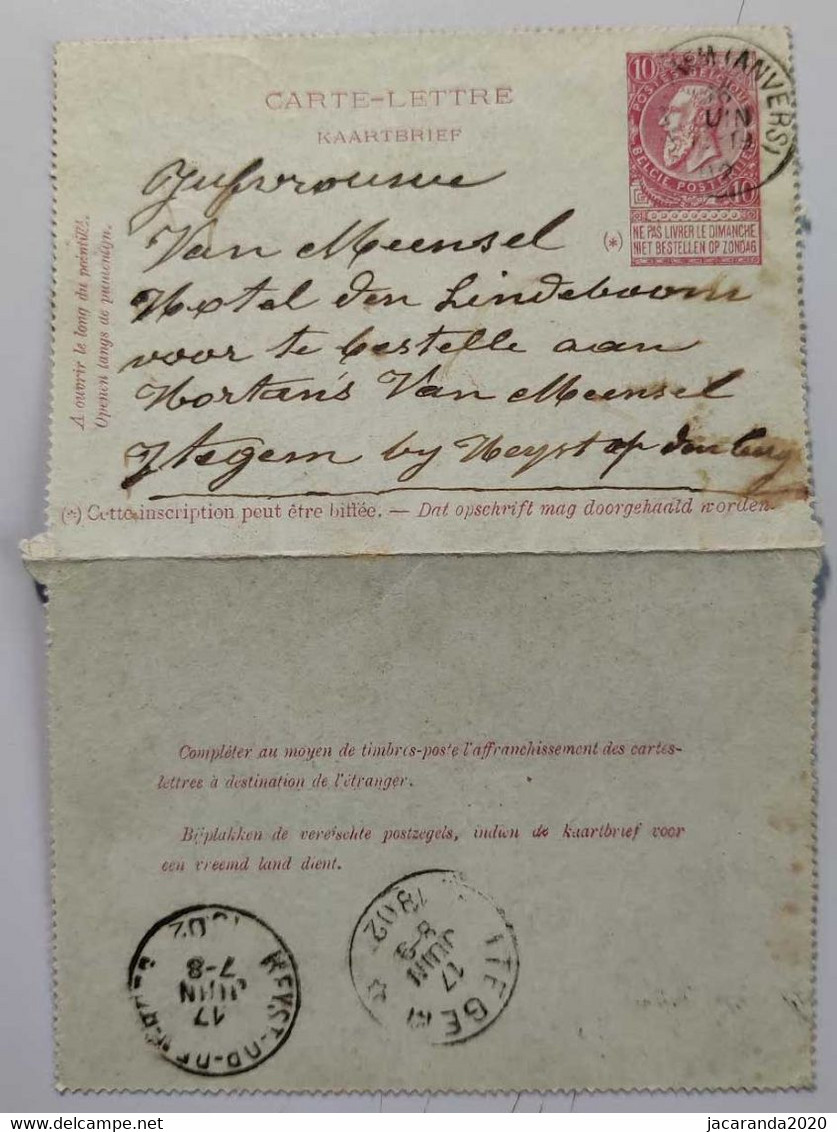 CARTE-LETTRE
KAARTBRIEF
10
POSTES BELGIQUE
BELGIË POSTERIJEN
10
(ANVERS)
(*)
NE PAS LIVRER LE DIMANCHE
NIET BESTELLEN OP ZONDAG
A ouvrir le long du pointillé.
Openen langs de puntenlijn.
Jufvrouwe
Van Meensel
Hotel den Lindeboom
voor te bestelle aan
Hortans Van Meensel
Itegem by Heyst op den berg
(*) Cette inscription peut être biffée. — Dat opschrift mag doorgehaald worden.
Compléter au moyen de timbres-poste l'affranchissement des cartes-
lettres à destination de l'étranger.
Bijplakken de vereischte postzegels, indien de kaartbrief voor
een vreemd land dient.
HEYST-OP-DEN-
17
JUIN
7-8
ITEGEM
17
JUIN
8-9
jacaranda2020